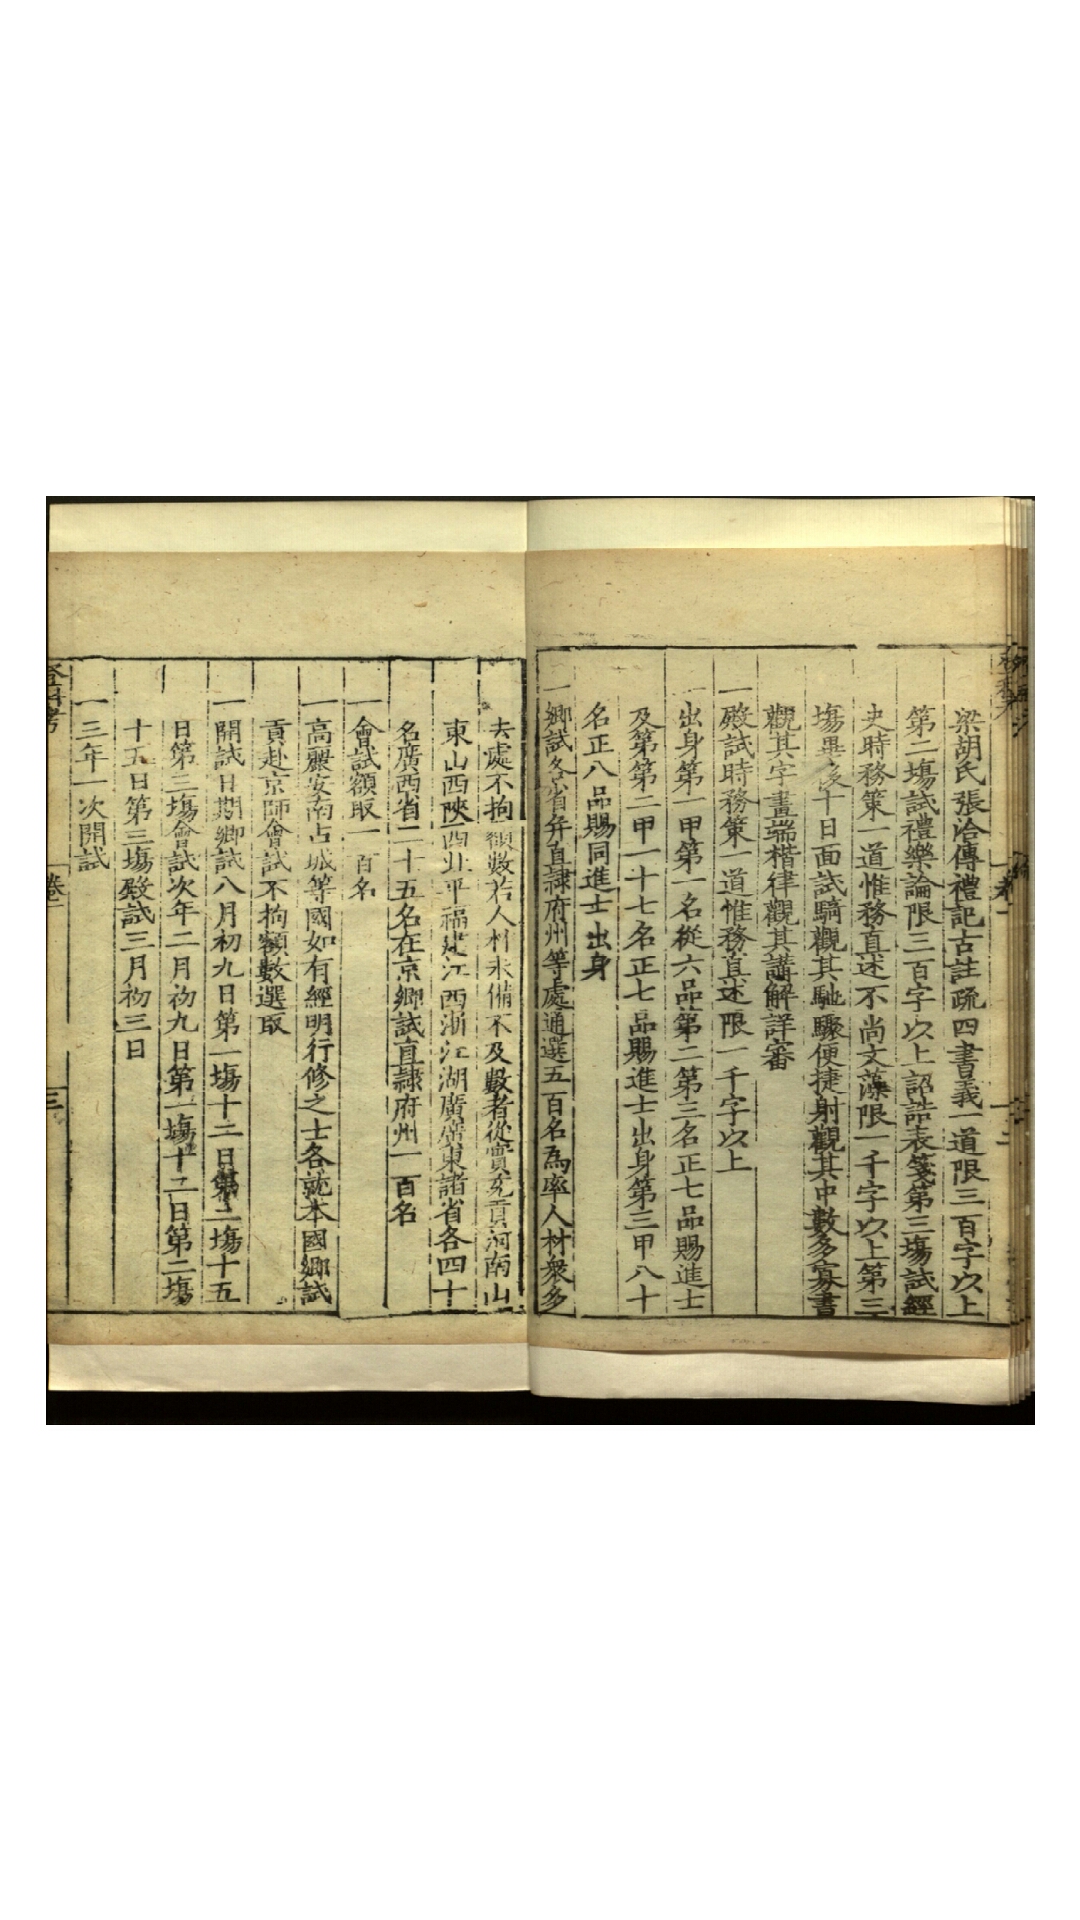 梁胡氏張洽傳禮記古註疏四書義一道限三百字以上
第二塲試禮樂論限三百字以上詔誥表箋第三塲試經
史時務策一道惟務直述不尚文藻限一千字以上第三
塲畢後十日面試騎觀其馳驟便捷射觀其中數多寡書
觀其字畫端楷律觀其講解詳審
一殿試時務策一道惟務直述限一千字以上
出身第一甲第一名從六品第二第三名正七品賜進士
及第第二甲一十七名正七品賜進士出身第三甲八十
名正八品賜同進士出身
一鄉試各省并直隷府州等處通選五百名為率人材衆多
去處不拘額數若人材未備不及數者從實充貢河南山
東山西陝西北平福建江西浙江湖廣廣東諸省各四十
名廣西省二十五名在京鄉試直隷府州一百名
一會試額取一百名
一高麗安南占城等國如有經明行修之士各就本國鄉試
貢赴京師會試不拘額數選取
一開試日期鄉試八月初九日第一塲十二日第二塲十五
日第三塲會試次年二月初九日第一塲十二日第二塲
十五日第三塲殿試三月初三日
一三年一次開試
登科考
卷一
三